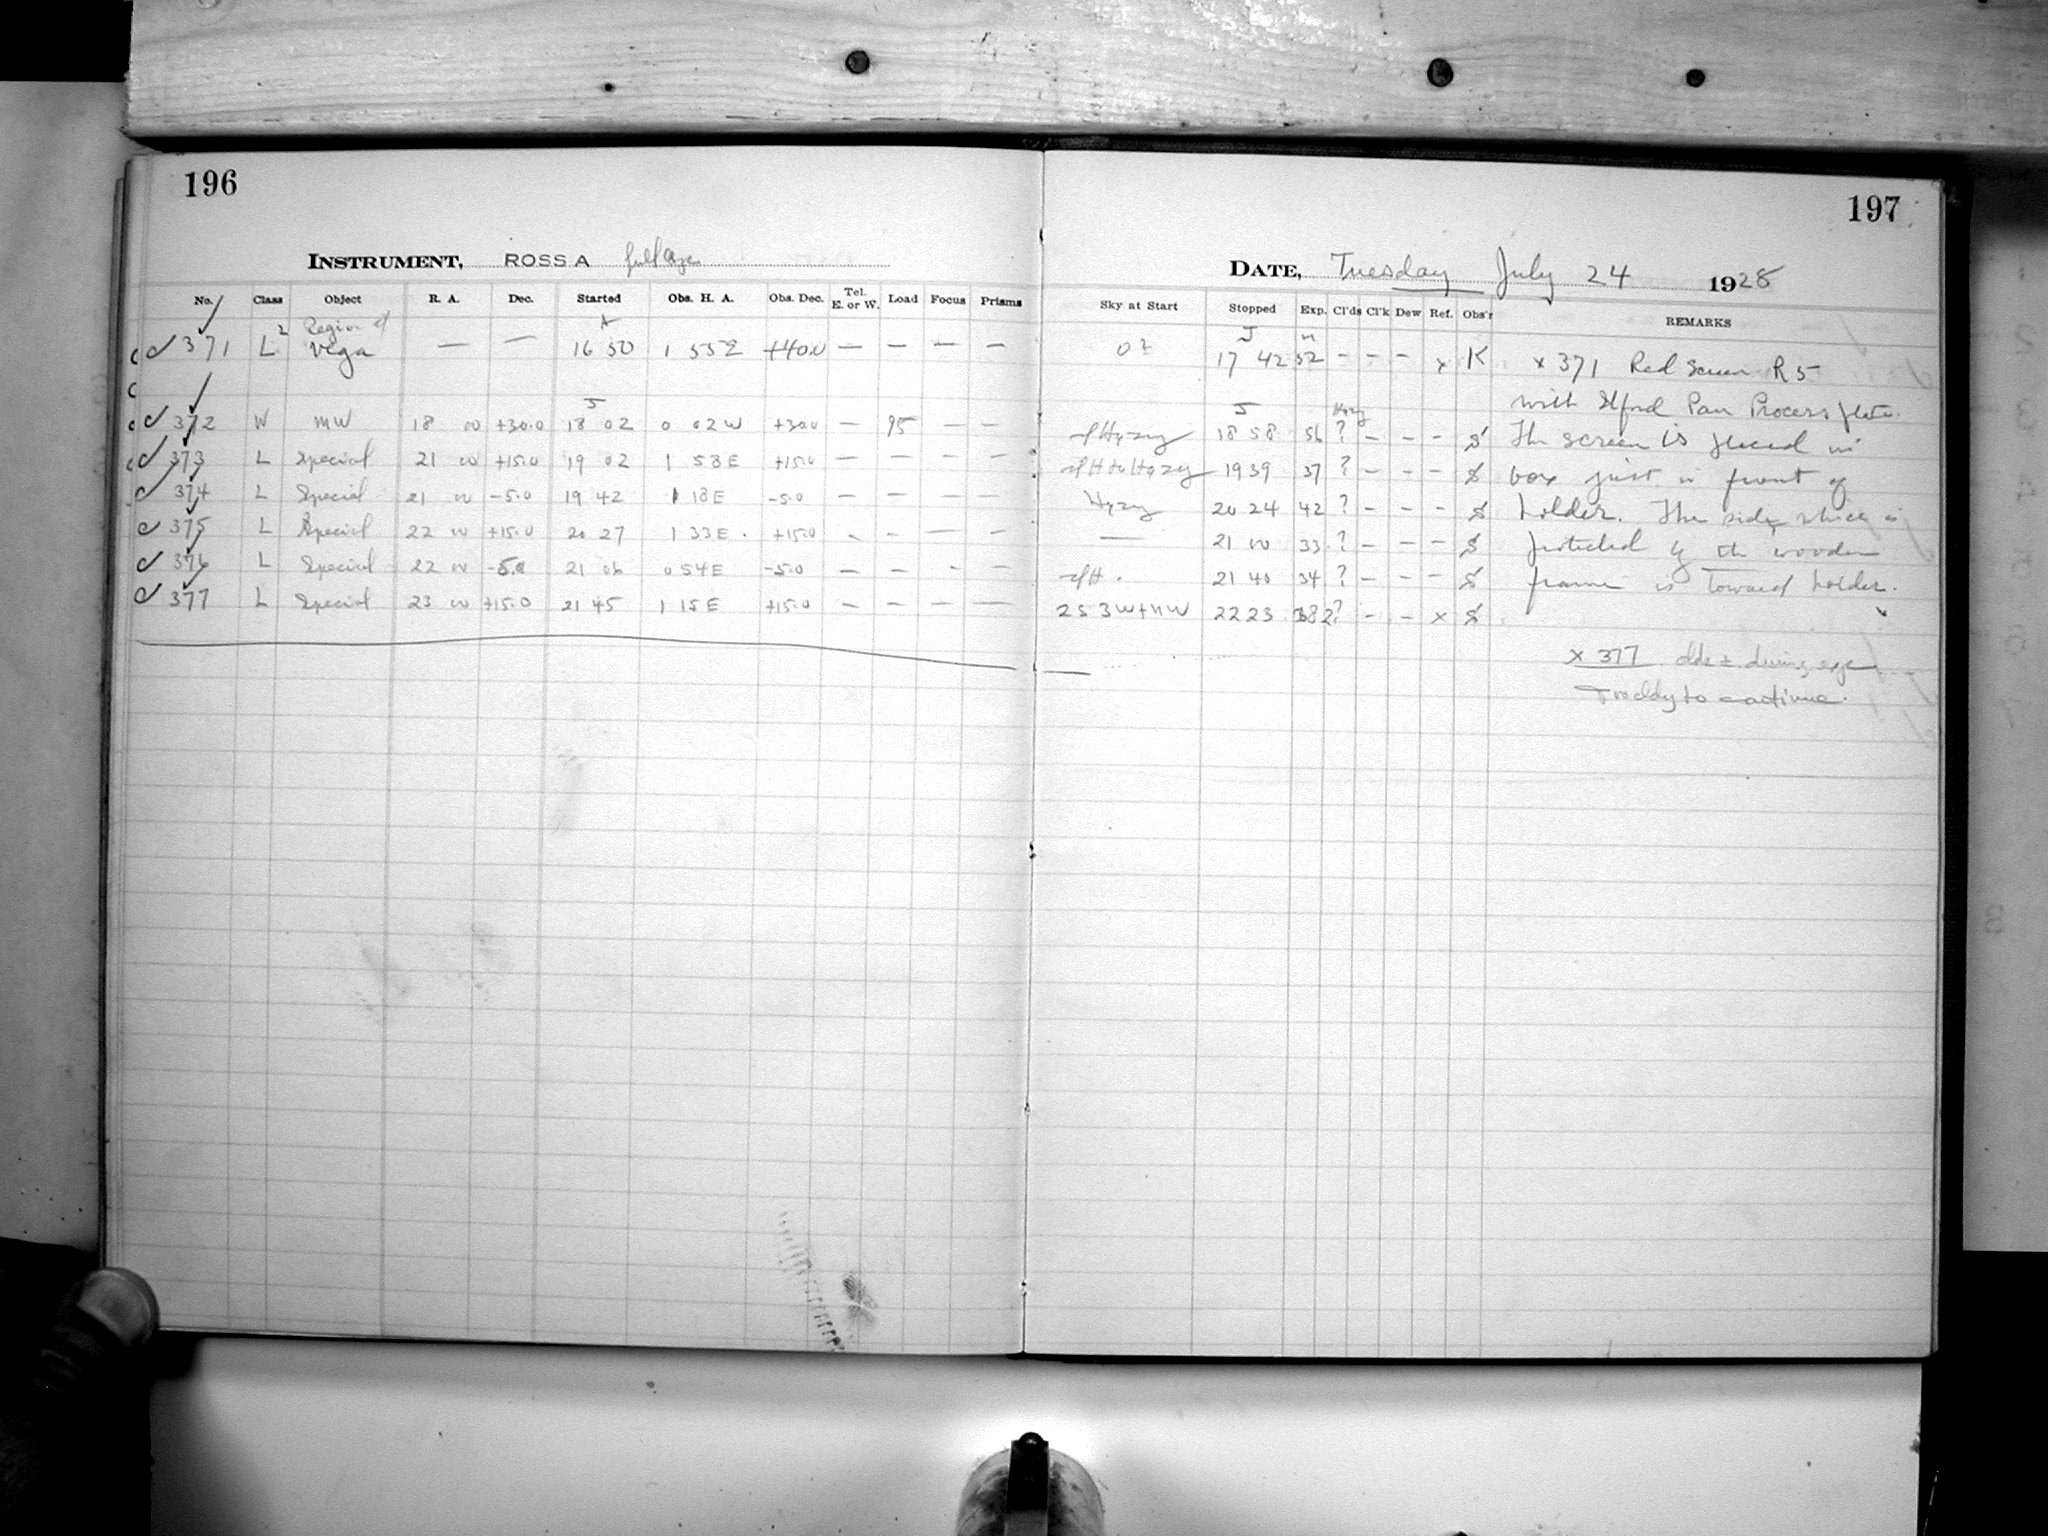 196
INSTRUMENT, ROSS A full ape
No. Class Object R. A. Dec. Started Obs. H. A. Obs. Dec. Tel. E. or W. Load Focus Prisms
371 L2 Region of Vega — — 16 50 1 55 E +40.0 — — — —
372 W MW 18 00 +30.0 18 02 0 02 W +30.0 — 95 — —
373 L Special 21 00 +15.0 19 02 1 58 E +15.0 — — — —
374 L Special 21 00 -5.0 19 42 1 18 E -5.0 — — — —
375 L Special 22 00 +15.0 20 27 1 33 E +15.0 — — — —
376 L Special 22 00 -5.0 21 06 0 54 E -5.0 — — — —
377 L Special 23 00 +15.0 21 45 1 15 E +15.0 — — — —
197
DATE, Tuesday July 24 1928
Sky at Start Stopped Exp. Cl'ds Cl'k Dew Ref. Obs'r REMARKS
0? 17 42 52 m — — — x K x 371 Red Screen R5
with Ilford Pan Process plate.
Hazy 18 58 56 ? — — — S The screen is placed in
H to Hazy 19 39 37 ? — — — S box just in front of
Hazy 20 24 42 ? — — — S holder. The side which is
— 21 00 33 ? — — — S protected by the wooden
H. 21 40 34 ? — — — S frame is toward holder.
2S 3W+NW 22 23 38 2? — — x S
x 377 clds ± during expe
+ ready to continue.